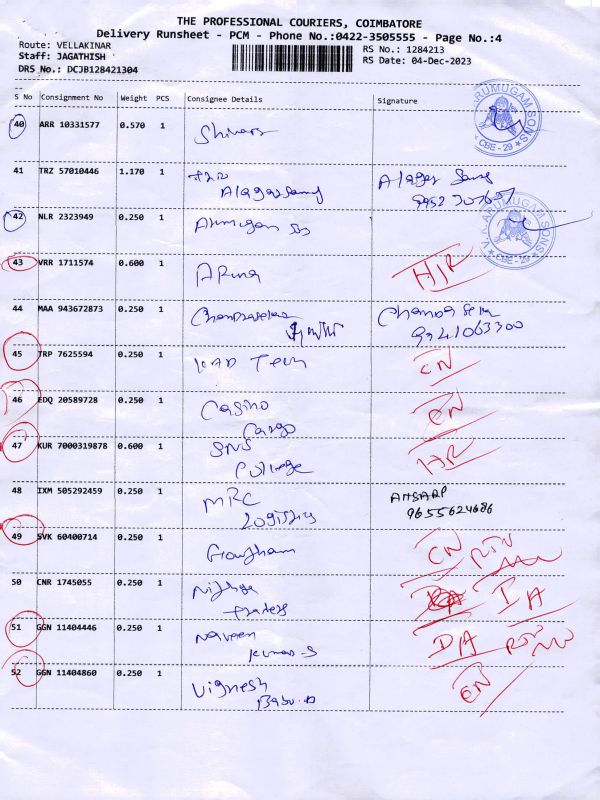 THE PROFESSIONAL COURIERS, COIMBATORE
Delivery Runsheet - PCM - Phone No.:0422-3505555 - Page No.:4
Route: VELLAKINAR
Staff: JAGATHISH
DRS No.: DCJB128421304
RS No.: 1284213
RS Date: 04-Dec-2023
S No Consignment No Weight PCS Consignee Details Signature
40 ARR 10331577 0.570 1
ARUMUGAM SONS
CBE - 29
41 TRZ 57010446 1.170 1
Alagarsamy
42 NLR 2323949 0.250 1
V.K. ARUMUGAM SONS
CBE - 29
43 VRR 1711574 0.600 1 Aruna
44 MAA 943672873 0.250 1 9941063300
45 TRP 7625594 0.250 1 KAD Tech CN
46 EDQ 20589728 0.250 1 Casino
Cargo
CN
47 KUR 7000319878 0.600 1 SNS
College
48 IXM 505292459 0.250 1 MRC
Logistics
ANSARI
9655624686
49 SVK 60400714 0.250 1 Gowtham CN RTN
50 CNR 1745055 0.250 1
Traders
IA
51 GGN 11404446 0.250 1 Naveen
Kumar-S
DA RTN
52 GGN 11404860 0.250 1 Vignesh
Babu.D
CN